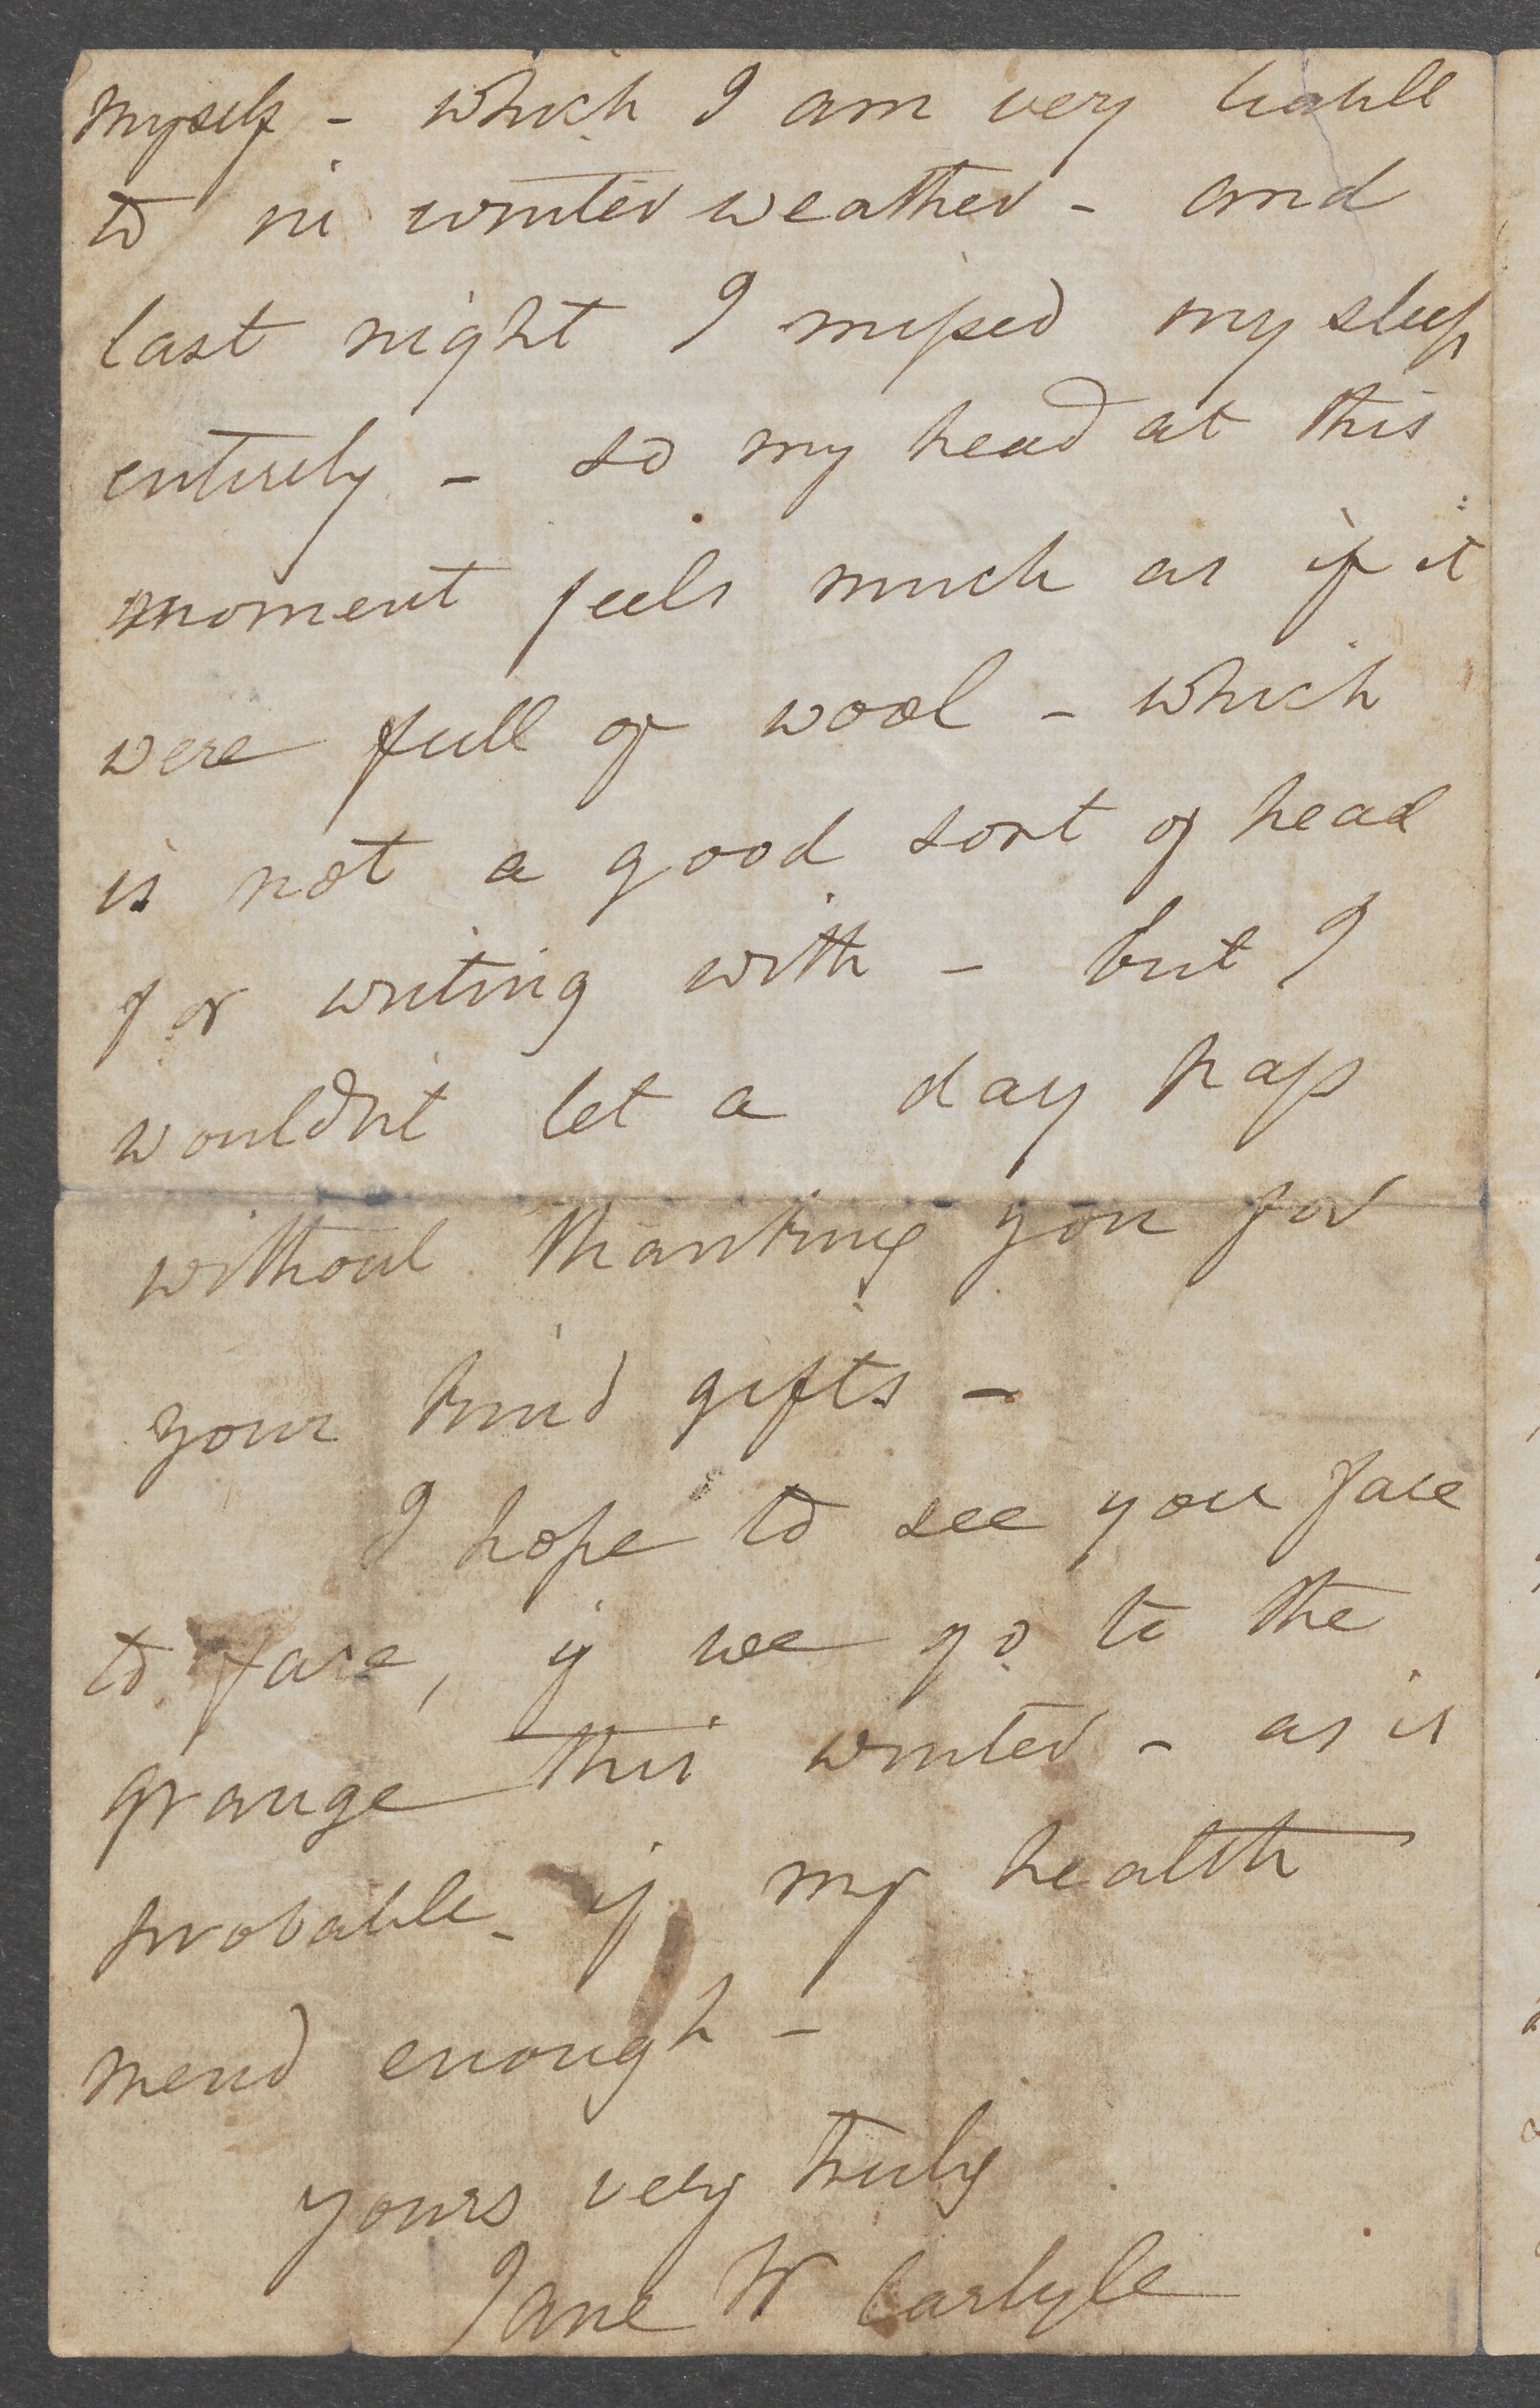 myself - which I am very liable
to in winter weather - and
last night I missed my sleep
entirely - so my head at this
moment feels much as if it
were full of wool - which
is not a good sort of head
for writing with - but I
wouldn't let a day pass
without thanking you for
your kind gifts -
I hope to see you face
to face, if we go to the
grange this winter - as is
probable - if my health
mend enough -
yours very truly
Jane W Carlyle